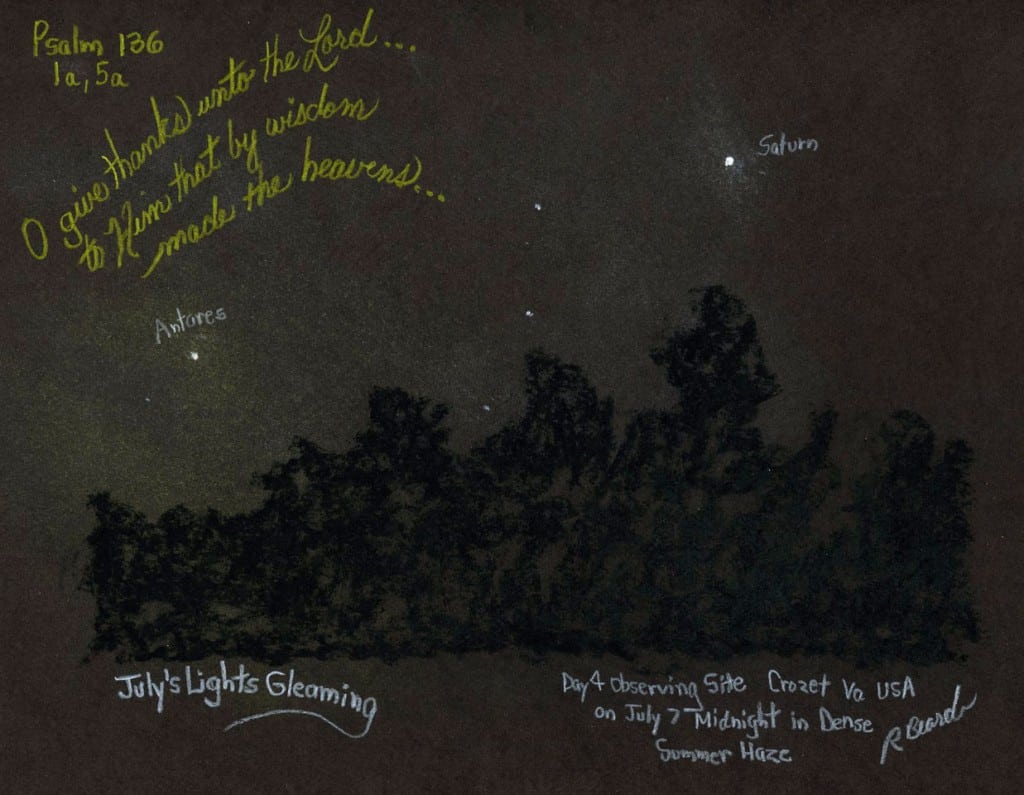 Psalm 136
1a, 5a
O give thanks unto the Lord...
to Him that by wisdom
made the heavens...
Saturn
Antares
July's Lights Gleaming
Day 4 Observing Site Crozet Va USA
on July 7 Midnight in Dense
Summer Haze
R Beard